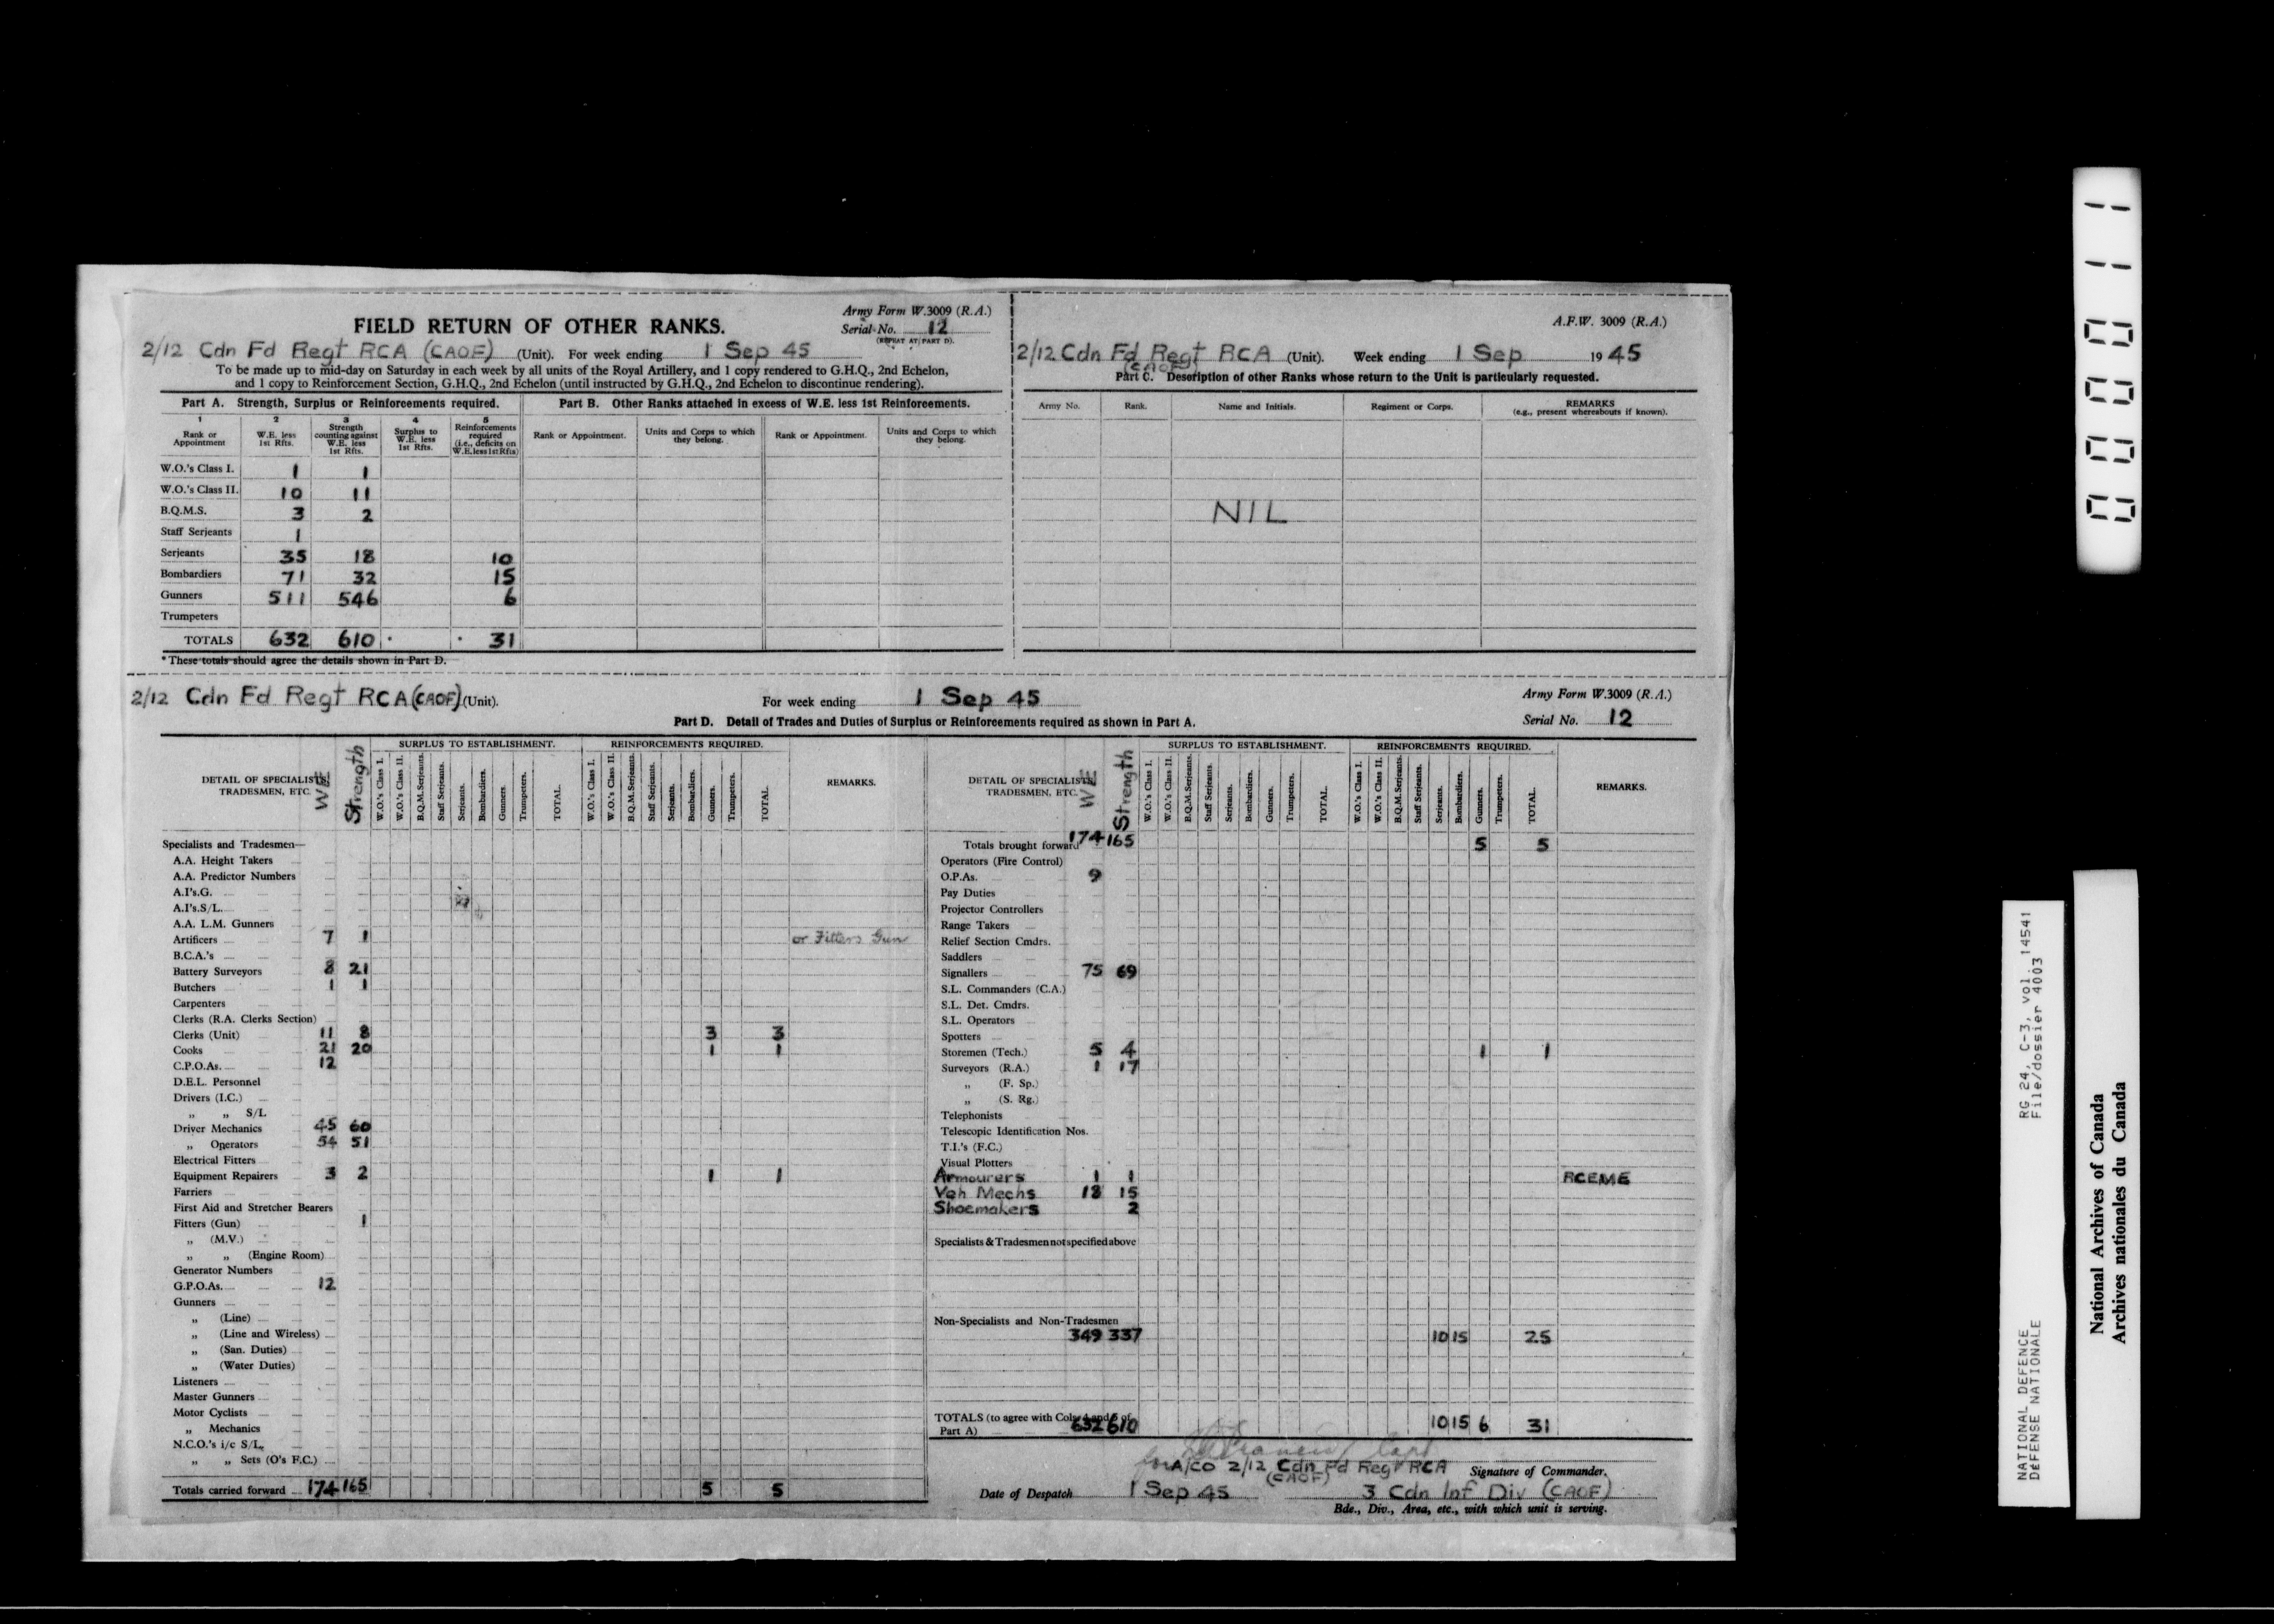 Army Form W.3009 (R.A.)
FIELD RETURN OF OTHER RANKS.
Serial No. 12
(REPEAT AT PART D).
2/12 Cdn Fd Regt RCA (CAOF) (Unit). For week ending 1 Sep 45
To be made up to mid-day on Saturday in each week by all units of the Royal Artillery, and 1 copy rendered to G.H.Q., 2nd Echelon,
and 1 copy to Reinforcement Section, G.H.Q., 2nd Echelon (until instructed by G.H.Q., 2nd Echelon to discontinue rendering).
Part A. Strength, Surplus or Reinforcements required.
1 2 3 4 5
Rank or Appointment
W.E. less 1st Rfts.
Strength counting against W.E. less 1st Rfts.
Surplus to W.E. less 1st Rfts.
Reinforcements required (i.e., deficits on W.E. less 1st Rfts)
W.O.'s Class I. 1 1
W.O.'s Class II. 10 11
B.Q.M.S. 3 2
Staff Serjeants 1
Serjeants 35 18 10
Bombardiers 71 32 15
Gunners 511 546 6
Trumpeters
TOTALS 632 610 * * 31
* These totals should agree the details shown in Part D.
Part B. Other Ranks attached in excess of W.E. less 1st Reinforcements.
Rank or Appointment.
Units and Corps to which they belong.
Rank or Appointment.
Units and Corps to which they belong.
A.F.W. 3009 (R.A.)
2/12 Cdn Fd Regt RCA (Unit). Week ending 1 Sep 1945
(CAOF)
Part C. Description of other Ranks whose return to the Unit is particularly requested.
Army No. Rank. Name and Initials. Regiment or Corps. REMARKS
(e.g., present whereabouts if known).
NIL
2/12 Cdn Fd Regt RCA (CAOF) (Unit). For week ending 1 Sep 45
Army Form W.3009 (R.A.)
Part D. Detail of Trades and Duties of Surplus or Reinforcements required as shown in Part A.
Serial No. 12
DETAIL OF SPECIALISTS, TRADESMEN, ETC.
WE
Strength
SURPLUS TO ESTABLISHMENT.
W.O.'s Class I. W.O.'s Class II. B.Q.M.Serjeants. Staff Serjeants. Serjeants. Bombardiers. Gunners. Trumpeters. TOTAL.
REINFORCEMENTS REQUIRED.
W.O.'s Class I. W.O.'s Class II. B.Q.M.Serjeants. Staff Serjeants. Serjeants. Bombardiers. Gunners. Trumpeters. TOTAL.
REMARKS.
Specialists and Tradesmen—
A.A. Height Takers
A.A. Predictor Numbers
A.I's.G.
A.I's.S/L.
A.A. L.M. Gunners
Artificers 7 1 or Fitters Gun
B.C.A.'s
Battery Surveyors 8 21
Butchers 1 1
Carpenters
Clerks (R.A. Clerks Section)
Clerks (Unit) 11 8 3 3
Cooks 21 20 1 1
C.P.O.As. 12
D.E.L. Personnel
Drivers (I.C.)
„ „ S/L
Driver Mechanics 45 60
„ Operators 54 51
Electrical Fitters
Equipment Repairers 3 2 1 1
Farriers
First Aid and Stretcher Bearers
Fitters (Gun) 1
„ (M.V.)
„ „ (Engine Room)
Generator Numbers
G.P.O.As. 12
Gunners
„ (Line)
„ (Line and Wireless)
„ (San. Duties)
„ (Water Duties)
Listeners
Master Gunners
Motor Cyclists
„ Mechanics
N.C.O.'s i/c S/L,
„ „ Sets (O's F.C.)
Totals carried forward 174 165 5 5
DETAIL OF SPECIALISTS, TRADESMEN, ETC.
WE
Strength
SURPLUS TO ESTABLISHMENT.
W.O.'s Class I. W.O.'s Class II. B.Q.M.Serjeants. Staff Serjeants. Serjeants. Bombardiers. Gunners. Trumpeters. TOTAL.
REINFORCEMENTS REQUIRED.
W.O.'s Class I. W.O.'s Class II. B.Q.M.Serjeants. Staff Serjeants. Serjeants. Bombardiers. Gunners. Trumpeters. TOTAL.
REMARKS.
Totals brought forward 174 165 5 5
Operators (Fire Control)
O.P.As. 9
Pay Duties
Projector Controllers
Range Takers
Relief Section Cmdrs.
Saddlers
Signallers 75 69
S.L. Commanders (C.A.)
S.L. Det. Cmdrs.
S.L. Operators
Spotters
Storemen (Tech.) 5 4 1 1
Surveyors (R.A.) 1 17
„ (F. Sp.)
„ (S. Rg.)
Telephonists
Telescopic Identification Nos.
T.I.'s (F.C.)
Visual Plotters
Armourers 1 1 RCEME
Veh Mechs 18 15
Shoemakers 2
Specialists & Tradesmen not specified above
Non-Specialists and Non-Tradesmen
349 337 10 15 25
TOTALS (to agree with Cols. 4 and 5 of Part A) 632 610 10 15 6 31
for A/CO 2/12 Cdn Fd Regt RCA Signature of Commander.
(CAOF)
Date of Despatch 1 Sep 45 3 Cdn Inf Div (CAOF)
Bde., Div., Area, etc., with which unit is serving.
000011
NATIONAL DEFENCE RG 24, C-3, vol. 14541
DÉFENSE NATIONALE File/dossier 4003
National Archives of Canada
Archives nationales du Canada